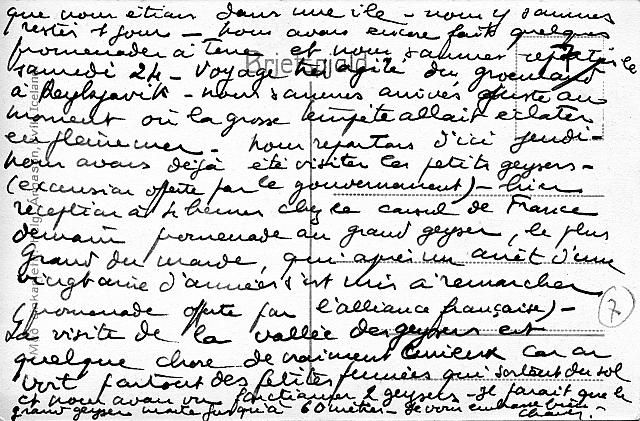 que nous étions dans une île - nous y sommes
restés 8 jours - nous avons encore fait quelques
promenades à terre et nous sommes repartis le
samedi 24 - Voyage très agité du Groenland
à Reykjavik - nous sommes arrivés juste au
moment où la grosse tempête allait éclater
en pleine mer. nous repartons d'ici jeudi -
nous avons déjà été visiter les petits geysers -
(excursion offerte par le gouvernement) - hier
réception à 4 heures chez le consul de France
demain promenade au grand geyser, le plus
grand du monde, qui après un arrêt d'une
vingtaine d'années s'est mis à remarcher
(promenade offerte par l'alliance française) -
La visite de la vallée des geysers est
quelque chose de vraiment curieux car on
voit partout des petites fumées qui sortent du sol
et nous avons vu fonctionner 2 geysers - Il parait que le
grand geyser monte jusqu'à 60 mètres - Je vous embrasse bien
Briefspjald
7